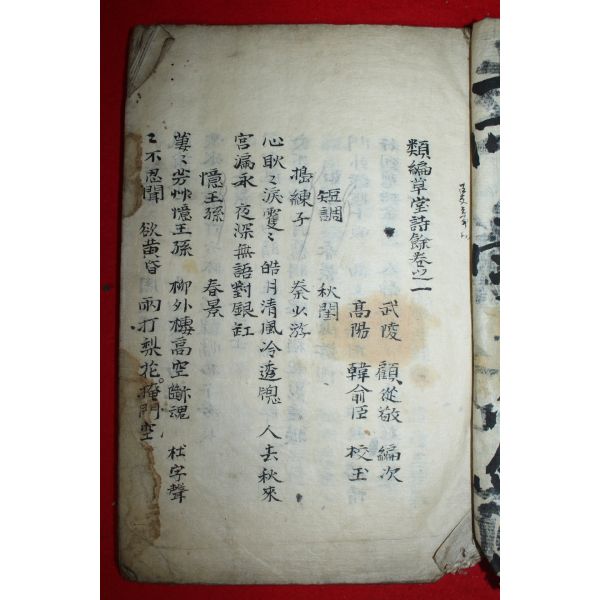 類編草堂詩餘卷之一
武陵 顧從敬 編次
高陽 韓俞臣 校正
短調 秋閨
搗練子 秦少游
心耿〻淚雙〻 皓月清風冷透牕 人去秋來
宮漏永 夜深無語對銀缸
憶王孫 春景
萋〻芳艸憶王孫 柳外樓高空斷魂 杜宇聲
〻不忍聞 欲黃昏 雨打梨花掩門空